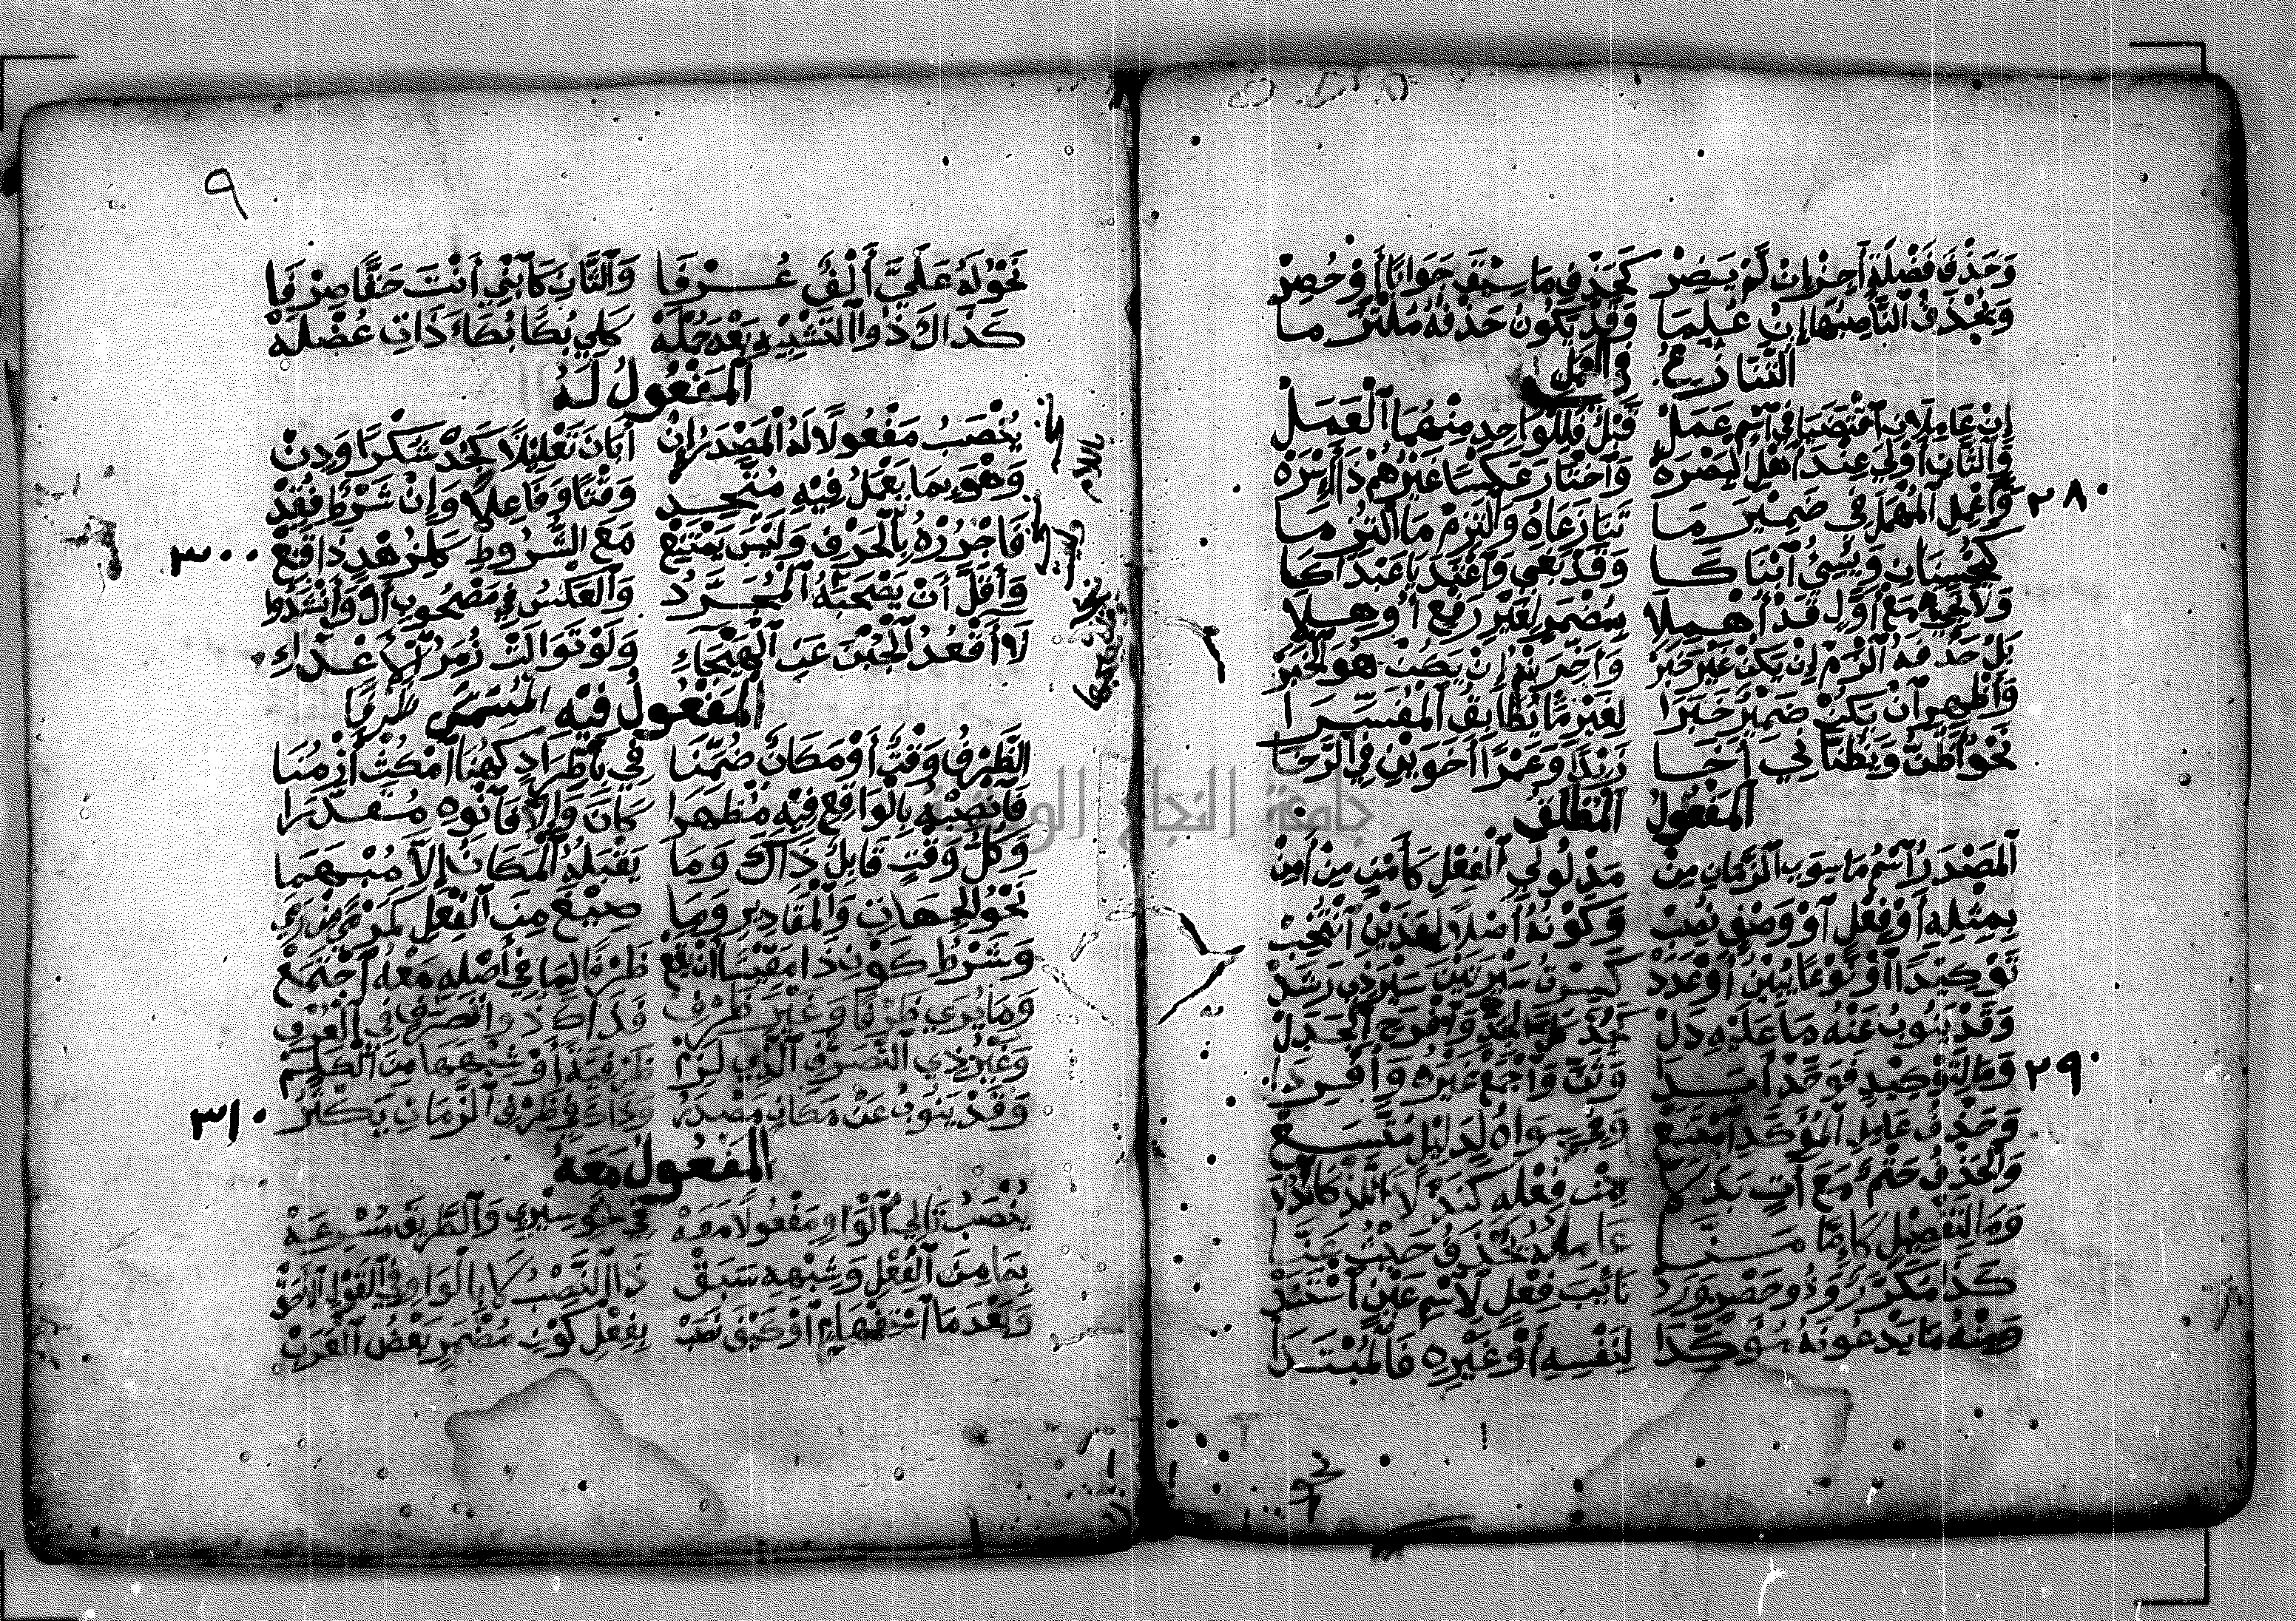 وَحَذْفَ فَضْلَةٍ أَجِزْ إِنْ لَمْ يَضِرْ كَحَذْفِ مَا سِيقَ جَوَابًا أَوْ حُصِرْ
وَيُحْذَفُ النَّاصِبُهَا إِنْ عُلِمَا وَقَدْ يَكُونُ حَذْفُهُ مُلْتَزَمَا
التَّنَازُعُ فِي العَمَلِ
إِنْ عَامِلَانِ اقْتَضَيَا فِي اسْمٍ عَمَلْ قَبْلُ فَلِلْوَاحِدِ مِنْهُمَا الْعَمَلْ
وَالثَّانِ أَوْلَى عِنْدَ أَهْلِ الْبَصْرَهْ وَاخْتَارَ عَكْسًا غَيْرُهُمْ ذَا أُسْرَهْ
وَأَعْمِلِ الْمُهْمَلَ فِي ضَمِيرِ مَا تَنَازَعَاهُ وَالْتَزِمْ مَا الْتُزِمَا ٢٨٠
كَيُحْسِنَانِ وَيُسِيءُ ابْنَاكَا وَقَدْ بَغَى وَاعْتَدَيَا عَبْدَاكَا
وَلَا تَجِئْ مَعْ أَوَّلٍ قَدْ أُهْمِلَا بِمُضْمَرٍ لِغَيْرِ رَفْعٍ أُوهِلَا
بَلْ حَذْفَهُ الْزَمْ إِنْ يَكُنْ غَيْرَ خَبَرْ وَأَخِّرَنْهُ إِنْ يَكُنْ هُوَ الْخَبَرْ
وَأَظْهِرِ انْ يَكُنْ ضَمِيرٌ خَبَرَا لِغَيْرِ مَا يُطَابِقُ الْمُفَسِّرَا
نَحْوُ أَظُنُّ وَيَظُنَّانِي أَخَا زَيْدًا وَعَمْرًا أَخَوَيْنِ فِي الرَّخَا
الْمَفْعُولُ الْمُطْلَقُ
الْمَصْدَرُ اسْمُ مَا سِوَى الزَّمَانِ مِنْ مَدْلُولَيِ الْفِعْلِ كَأَمْنٍ مِنْ أَمِنْ
بِمِثْلِهِ أَوْ فِعْلٍ أَوْ وَصْفٍ نُصِبْ وَكَوْنُهُ أَصْلًا لِهَذَيْنِ انْتُخِبْ
تَوْكِيدًا أَوْ نَوْعًا يُبِينُ أَوْ عَدَدْ كَسِرْتُ سَيْرَتَيْنِ سَيْرَ ذِي رَشَدْ
وَقَدْ يَنُوبُ عَنْهُ مَا عَلَيْهِ دَلّْ كَجِدَّ كُلَّ الْجِدِّ وَافْرَحِ الْجَذَلْ
وَمَا لِتَوْكِيدٍ فَوَحِّدْ أَبَدَا وَثَنِّ وَاجْمَعْ غَيْرَهُ وَأَفْرِدَا ٢٩٠
وَحَذْفُ عَامِلِ الْمُؤَكِّدِ امْتَنَعْ وَفِي سِوَاهُ لِدَلِيلٍ مُتَّسَعْ
وَالْحَذْفُ حَتْمٌ مَعَ آتٍ بَدَلَا مِنْ فِعْلِهِ كَنَدْلًا اللَّذْ كَانْدُلَا
وَمَا لِتَفْصِيلٍ كَإِمَّا مَنَّا عَامِلُهُ يُحْذَفُ حَيْثُ عَنَّا
كَذَا مُكَرَّرٌ وَذُو حَصْرٍ وَرَدْ نَائِبَ فِعْلٍ لِاسْمِ عَيْنٍ اسْتَنَدْ
وَمِنْهُ مَا يَدْعُونَهُ مُؤَكِّدَا لِنَفْسِهِ أَوْ غَيْرِهِ فَالْمُبْتَدَا
٩
نَحْوُ لَهُ عَلَيَّ أَلْفٌ عُرْفَا وَالثَّانِ كَابْنِي أَنْتَ حَقًّا صِرْفَا
كَذَاكَ ذُو التَّشْبِيهِ بَعْدَ جُمْلَهْ كَلِي بُكًا بُكَاءَ ذَاتِ عُضْلَهْ
الْمَفْعُولُ لَهُ
يُنْصَبُ مَفْعُولًا لَهُ الْمَصْدَرُ إِنْ أَبَانَ تَعْلِيلًا كَجُدْ شُكْرًا وَدِنْ
وَهْوَ بِمَا يَعْمَلُ فِيهِ مُتَّحِدْ وَقْتًا وَفَاعِلًا وَإِنْ شَرْطٌ فُقِدْ
فَاجْرُرْهُ بِالْحَرْفِ وَلَيْسَ يَمْتَنِعْ مَعَ الشُّرُوطِ كَلِزُهْدٍ ذَا قَنِعْ ٣٠٠
وَقَلَّ أَنْ يَصْحَبَهُ الْمُجَرَّدُ وَالْعَكْسُ فِي مَصْحُوبِ أَلْ وَأَنْشَدُوا
لَا أَقْعُدُ الْجُبْنَ عَنِ الْهَيْجَاءِ وَلَوْ تَوَالَتْ زُمَرُ الْأَعْدَاءِ
الْمَفْعُولُ فِيهِ الْمُسَمَّى ظَرْفًا
الظَّرْفُ وَقْتٌ أَوْ مَكَانٌ ضُمِّنَا فِي بِاطِّرَادٍ كَهُنَا امْكُثْ أَزْمُنَا
فَانْصِبْهُ بِالْوَاقِعِ فِيهِ مُظْهَرَا كَانَ وَإِلَّا فَانْوِهِ مُقَدَّرَا
وَكُلُّ وَقْتٍ قَابِلٌ ذَاكَ وَمَا يَقْبَلُهُ الْمَكَانُ إِلَّا مُبْهَمَا
نَحْوُ الْجِهَاتِ وَالْمَقَادِيرِ وَمَا صِيغَ مِنَ الْفِعْلِ كَمَرْمًى مِنْ رَمَى
وَشَرْطُ كَوْنِ ذَا مَقِيسًا أَنْ يَقَعْ ظَرْفًا لِمَا فِي أَصْلِهِ مَعْهُ اجْتَمَعْ
وَمَا يُرَى ظَرْفًا وَغَيْرَ ظَرْفِ فَذَاكَ ذُو تَصَرُّفٍ فِي الْعُرْفِ
وَغَيْرُ ذِي التَّصَرُّفِ الَّذِي لَزِمْ ظَرْفِيَّةً أَوْ شِبْهَهَا مِنَ الْكَلِمْ
وَقَدْ يَنُوبُ عَنْ مَكَانٍ مَصْدَرُ وَذَاكَ فِي ظَرْفِ الزَّمَانِ يَكْثُرُ ٣١٠
الْمَفْعُولُ مَعَهُ
يُنْصَبُ تَالِي الْوَاوِ مَفْعُولًا مَعَهْ فِي نَحْوِ سِيرِي وَالطَّرِيقَ مُسْرِعَهْ
بِمَا مِنَ الْفِعْلِ وَشِبْهِهِ سَبَقْ ذَا النَّصْبُ لَا بِالْوَاوِ فِي الْقَوْلِ الْأَحَقّْ
وَبَعْدَ مَا اسْتِفْهَامٍ أَوْ كَيْفَ نَصَبْ بِفِعْلِ كَوْنٍ مُضْمَرٍ بَعْضُ الْعَرَبْ
جامعة النجاح الوطنية